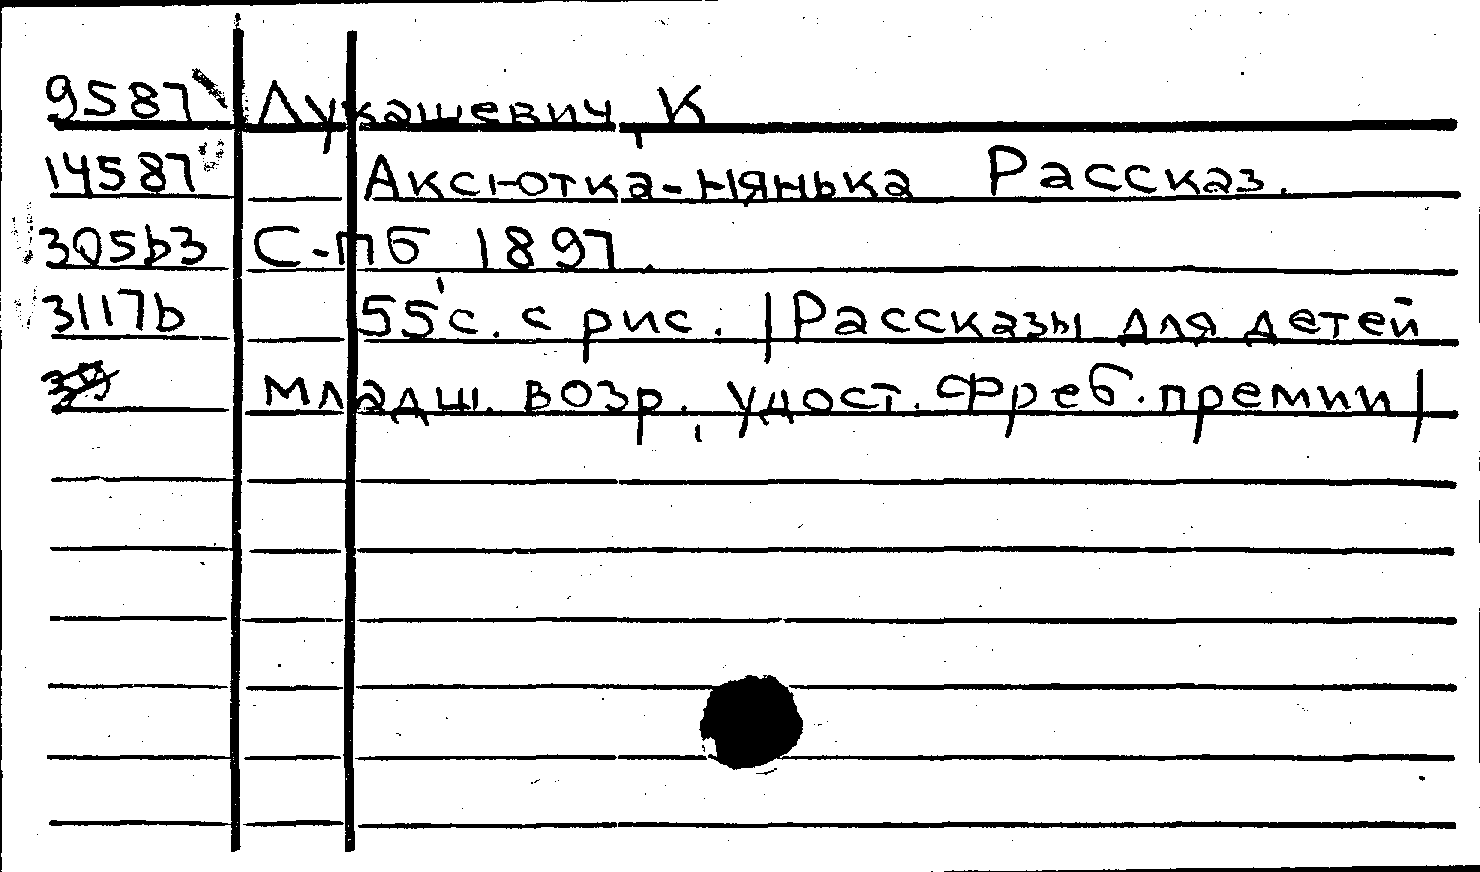 9587 Лукашевич, К
14587 Аксютка-нянька Рассказ.
305b3 С-Пб, 1897.
3117b 55 с. с рис. |Рассказы для детей
младш. возр., удост. Фреб. премии|